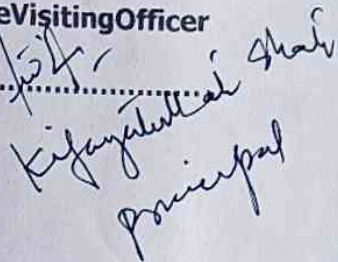 eVisitingOfficer
Kifayatullah Shah
Principal